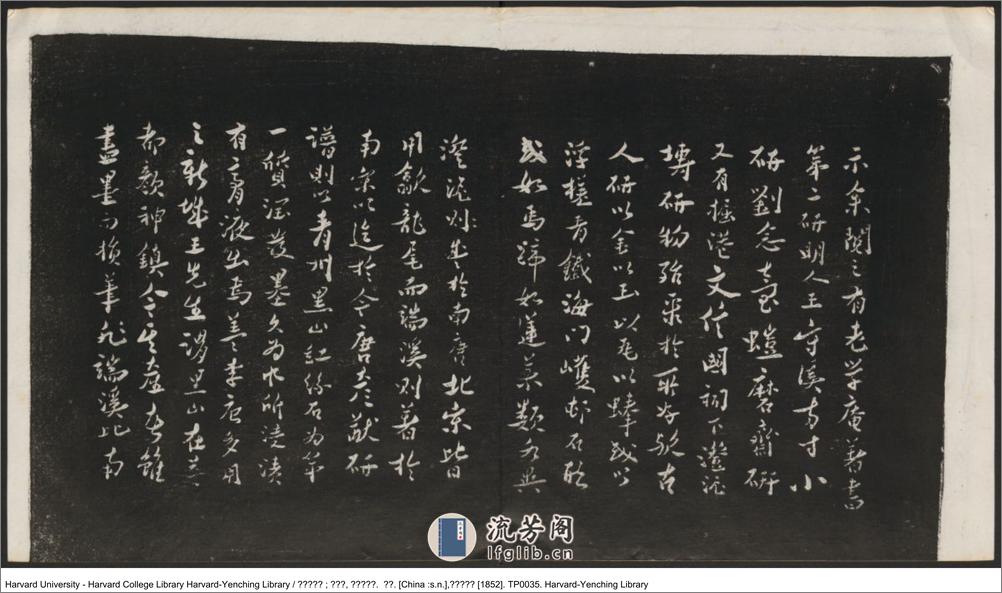 示余閱之有老學庵著書
第二研明人王守溪方寸小
研劉念臺蟫磨齋研
又有掘港文信國祠下澄泥
塼研物殆采於耳好放古
人研以金以玉以瓦以蚌或以
浮槎青鐵海门嶁邨石
或如馬蹄如蓮葉類各與
澄泥則甚於南唐北宋皆
用歙龍尾而端溪則著於
南宋以迄於今唐彥猷研
譜則以青州黑山紅絲石為第
一質潤發墨久為水所浸漬
有膏液出焉蓋李唐多用
之新城王先生謂黑山在益
都顏神鎮今其產甚雖
盡墨而損筆非端溪比南
流芳阁
lfglib.cn
Harvard University - Harvard College Library Harvard-Yenching Library / ????? ; ???, ?????. ??. [China :s.n.],????? [1852]. TP0035. Harvard-Yenching Library